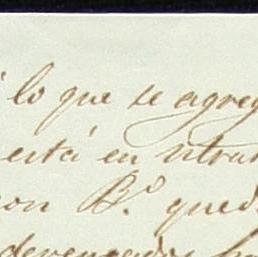 lo que se agreg
está en
on B.º qued
devengados